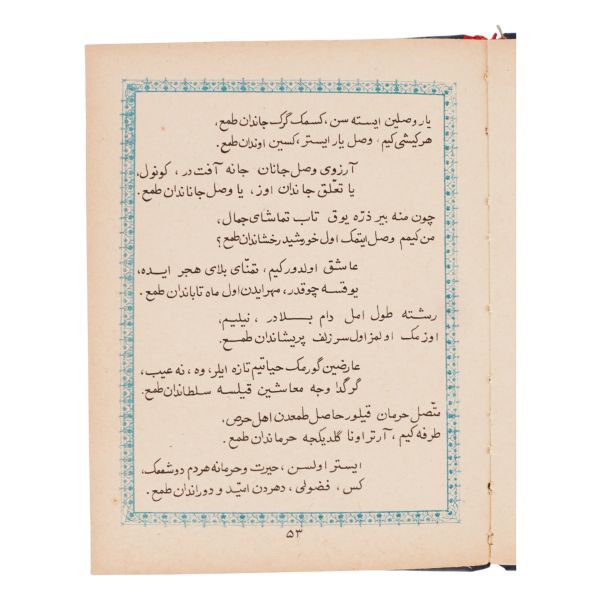 یار وصلین ایسته سن، کسمک گرک جاندان طمع،
هر کیشی کیم، وصل یار ایستر، کسین اوندان طمع.
آرزوی وصل جانان جانه آفت در، کونول،
یا تعلّق جاندان اوز، یا وصل جاناندان طمع.
چون منه بیر ذرّه یوق تاب تماشای جمال،
من کیمم وصل ایتمک اول خورشید رخشاندان طمع؟
عاشق اولدور کیم، تمنّای بلای هجر ایده،
یوقسه چوقدر، مهر ایدن اول ماه تاباندان طمع.
رشته طول امل دام بلادر، نیلیم،
اوزمک اولمز اول سر زلف پریشاندان طمع.
عارضین گورمک حیاتیم تازه ایلر، وه، نه عیب،
گر گدا وجه معاشین قیلسه سلطاندان طمع.
متّصل حرمان قیلور حاصل طمعدن اهل حرص،
طرفه کیم، آرتر اونا گلدیکجه حرماندان طمع.
ایستر اولسن، حیرت و حرمانه هردم دوشمک،
کس، فضولی، دهردن امّید و دوراندان طمع.
۵۳